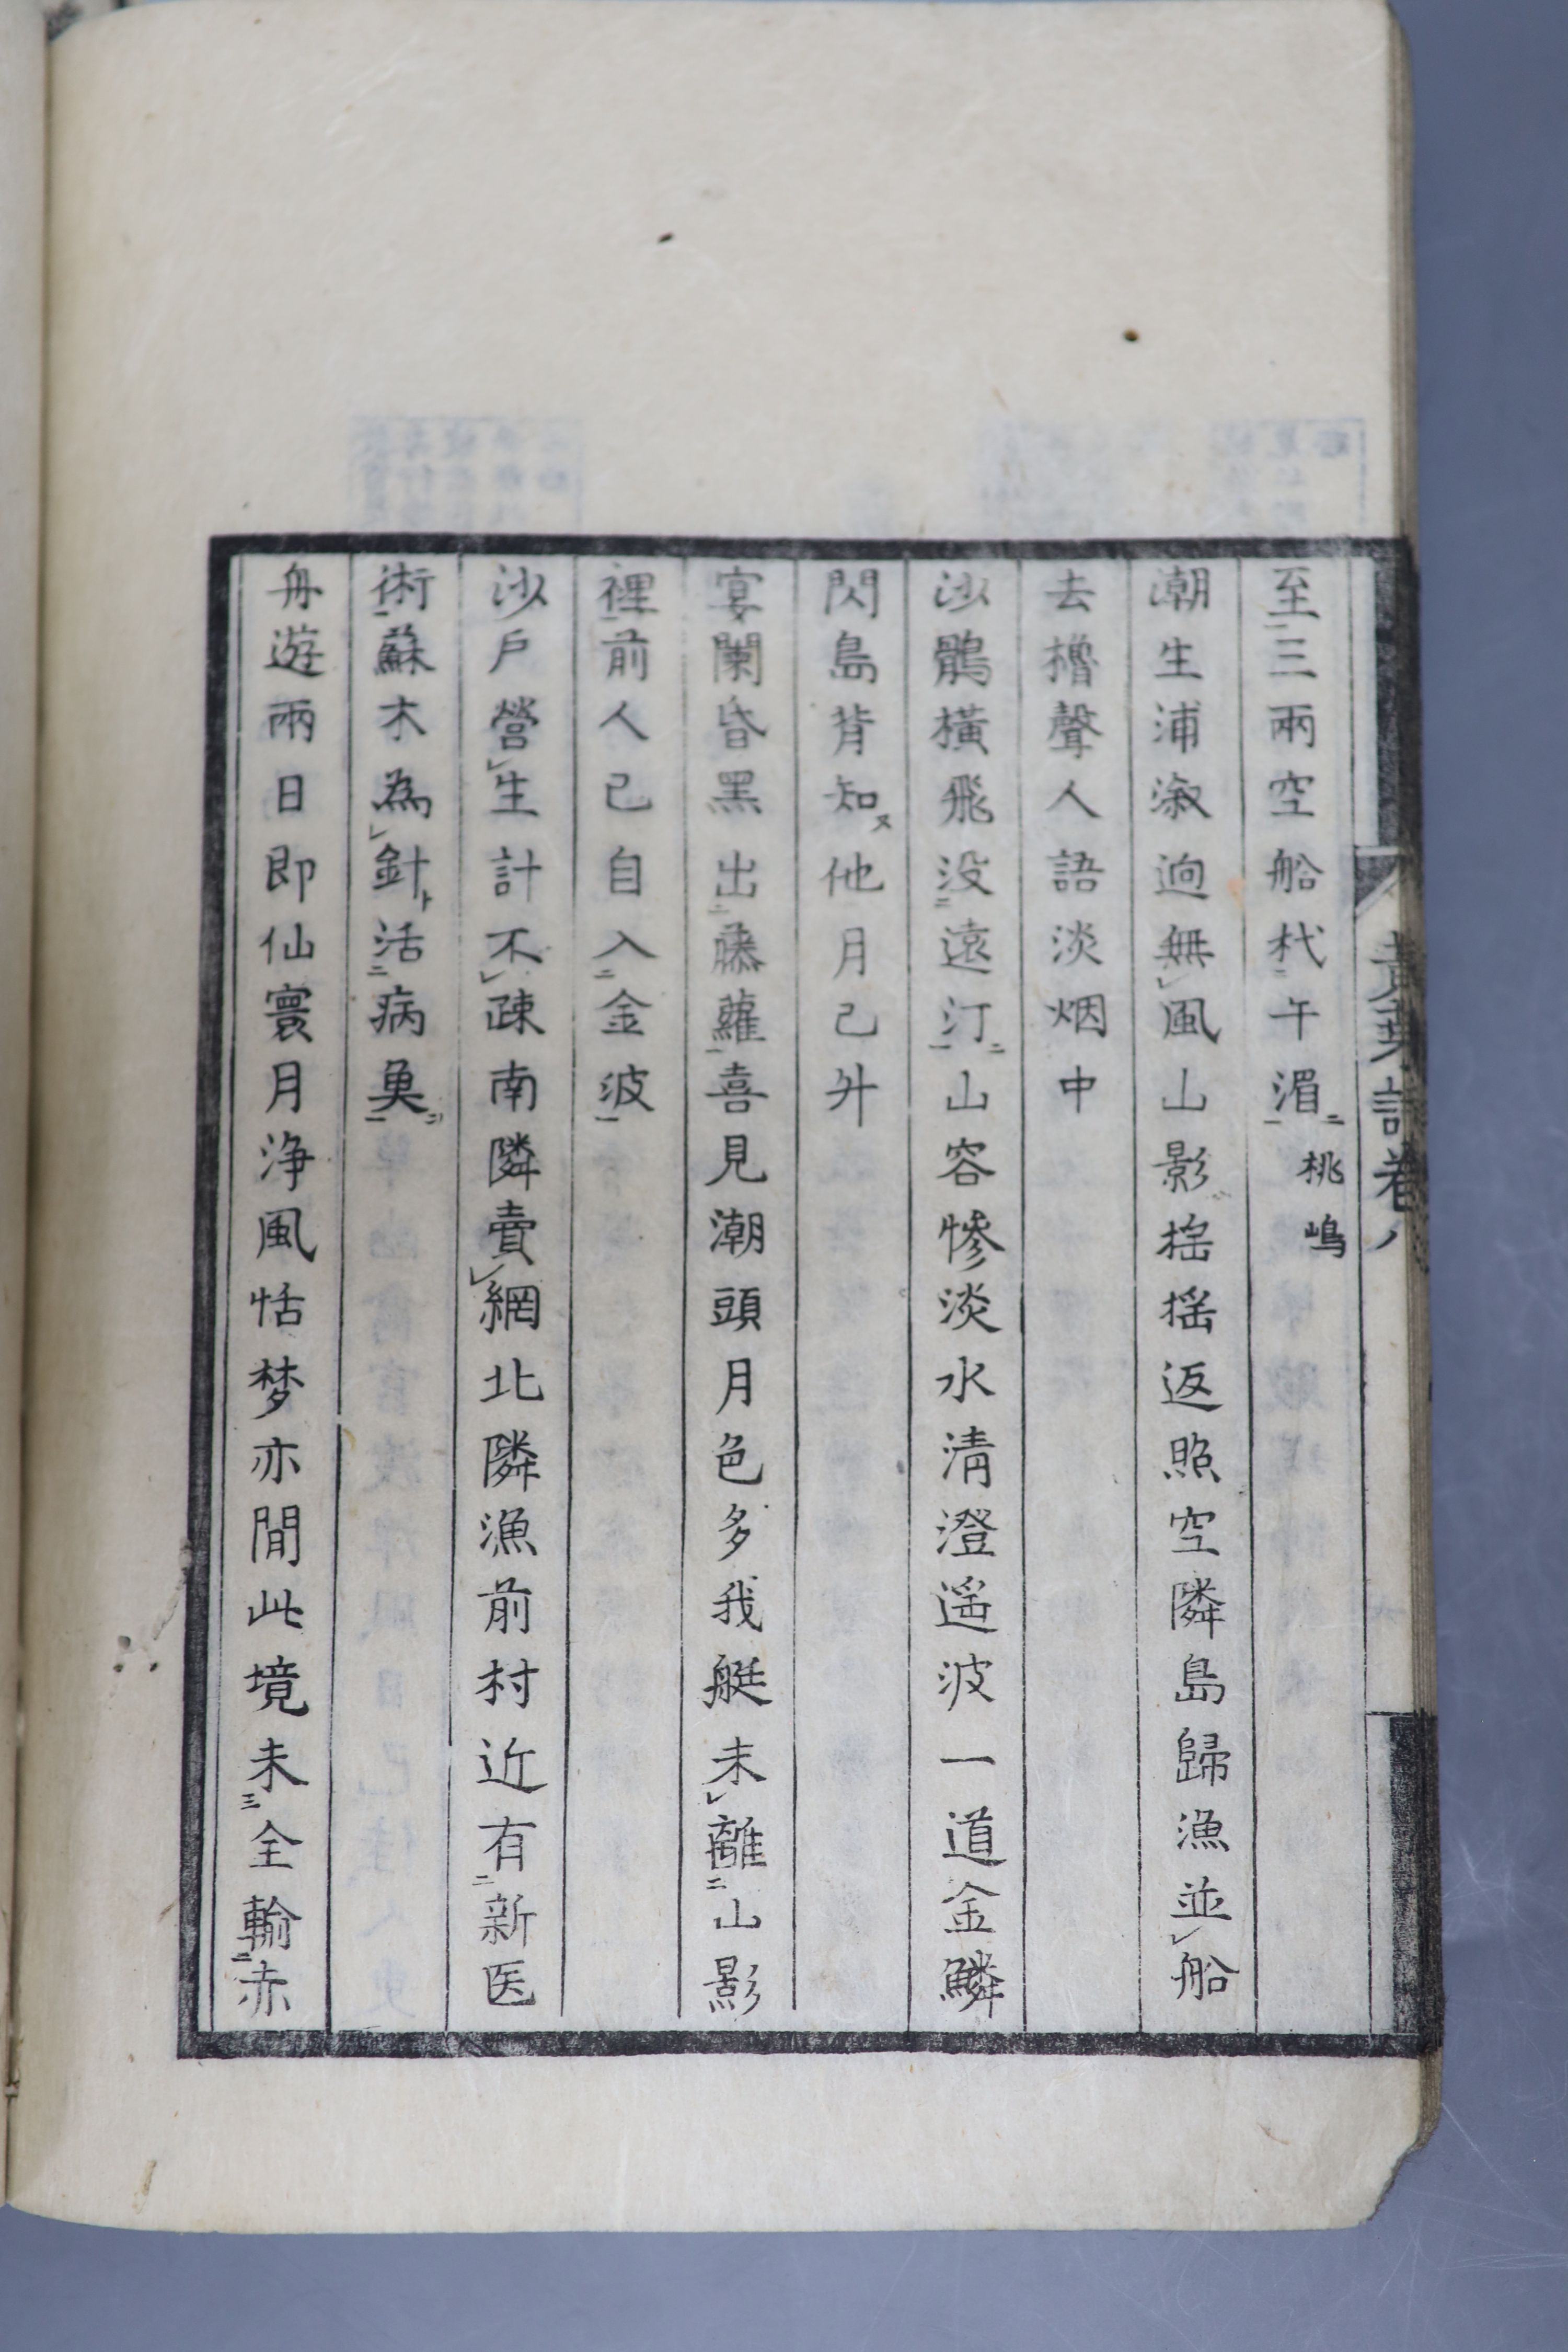 至三兩空船杙午湄桃嶋
潮生浦溆逈無風山影搖搖返照空隣島歸漁並船
去櫓聲人語淡烟中
沙鶻橫飛没遠汀山容慘淡水清澄遥波一道金鱗
閃島背知他月已升
宴闌昏黑出藤蘿喜見潮頭月色多我艇未離山影
裡前人已自入金波
沙戶營生計不疎南隣賣網北隣漁前村近有新医
術蘇木為針活病奠
舟遊兩日即仙寰月浄風恬梦亦閒此境未全輸赤